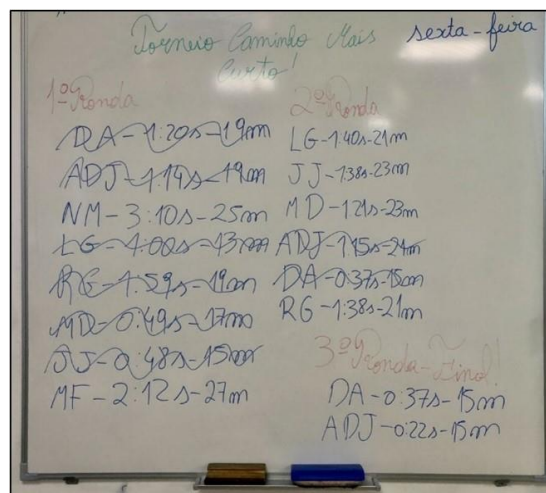 Torneio Caminho Mais
Curto!
sexta-feira
1ª Ronda
DA-1:20s-19m
ADJ-1:14s-19m
NM-3:10s-25m
LG-1:00s-13m
RG-1:59s-19m
MD-0:49s-17m
JJ-0:48s-15m
MF-2:12s-27m
2ª Ronda
LG-1:40s-21m
JJ-1:38s-23m
MD-1:21s-23m
ADJ-1:15s-21m
DA-0:37s-15m
RG-1:38s-21m
3ª Ronda-Final!
DA-0:37s-15m
ADJ-0:22s-15m